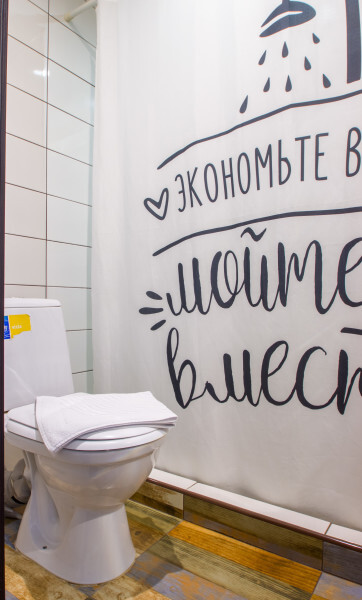 ЭКОНОМЬТЕ В
мойте
вмест